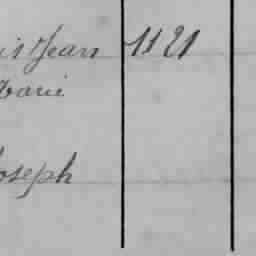 is Jean 1121
Marie
Joseph